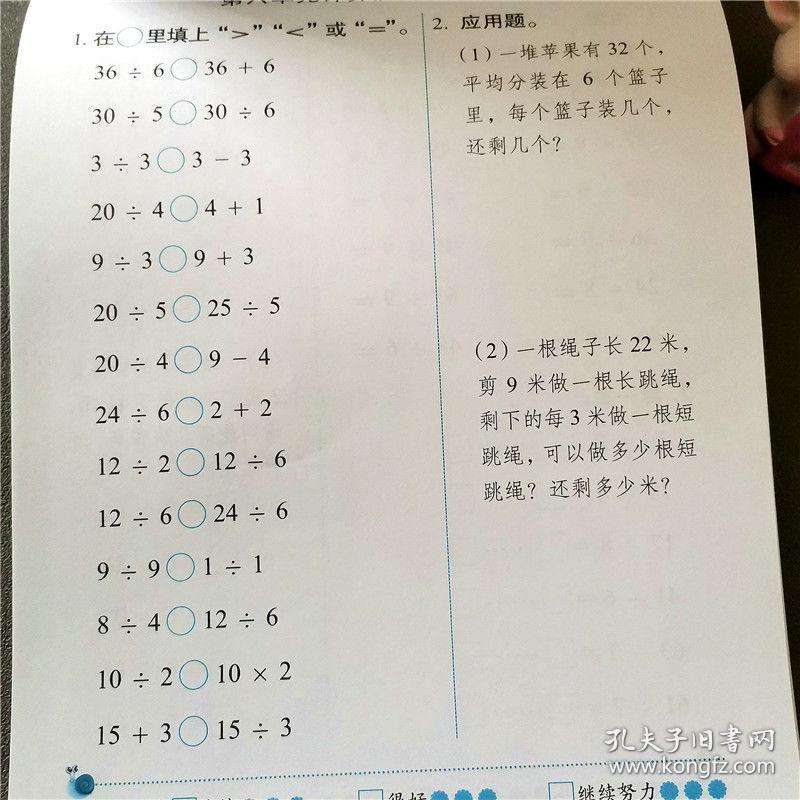 1. 在○里填上“>”“<”或“=”。
36 ÷ 6○36 + 6
30 ÷ 5○30 ÷ 6
3 ÷ 3○3 − 3
20 ÷ 4○4 + 1
9 ÷ 3○9 + 3
20 ÷ 5○25 ÷ 5
20 ÷ 4○9 − 4
24 ÷ 6○2 + 2
12 ÷ 2○12 ÷ 6
12 ÷ 6○24 ÷ 6
9 ÷ 9○1 ÷ 1
8 ÷ 4○12 ÷ 6
10 ÷ 2○10 × 2
15 + 3○15 ÷ 3
2. 应用题。
(1) 一堆苹果有 32 个，
平均分装在 6 个篮子
里，每个篮子装几个，
还剩几个？
(2) 一根绳子长 22 米，
剪 9 米做一根长跳绳，
剩下的每 3 米做一根短
跳绳，可以做多少根短
跳绳？还剩多少米？
很好
继续努力
孔夫子旧书网
www.kongfz.com